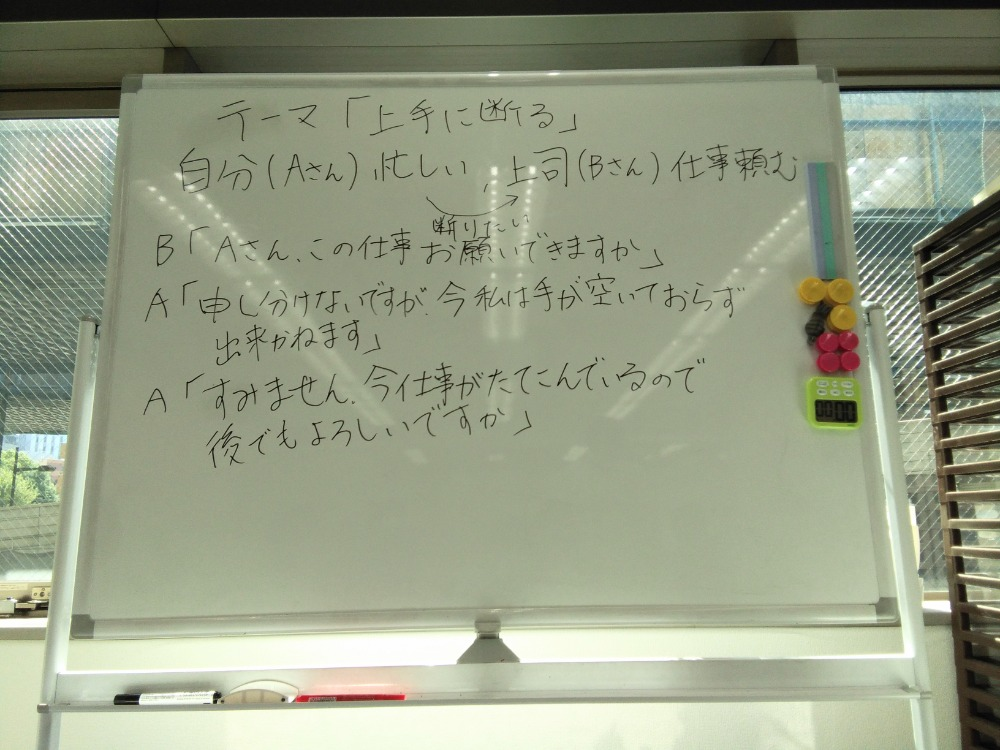 テーマ「上手に断る」
自分(Aさん)忙しい、上司(Bさん)仕事頼む
断りたい
B「Aさん、この仕事お願いできますか」
A「申し分けないですが、今私は手が空いておらず
出来かねます」
A「すみません、今仕事がたてこんでいるので
後でもよろしいですか」